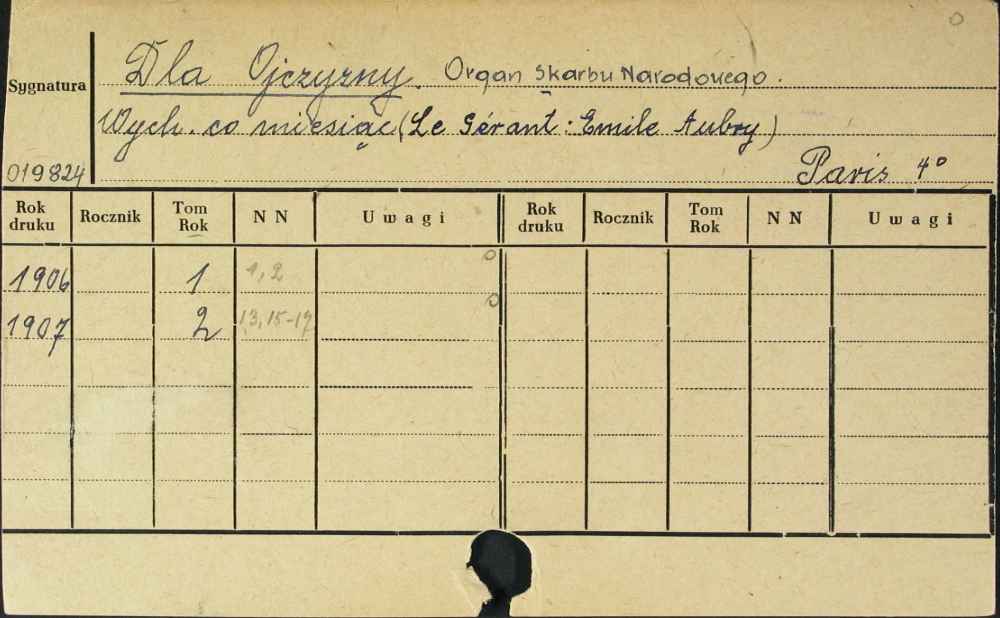 O
Dla Ojczyzny. Organ Skarbu Narodowego.
Sygnatura
Wych. co miesiąc (Le Gérant: Emile Aubry)
019824
Paris 4°
Rok druku Rocznik Tom Rok NN Uwagi Rok druku Rocznik Tom Rok NN Uwagi
1906 1 1,2 o
1907 2 13,15-17 o